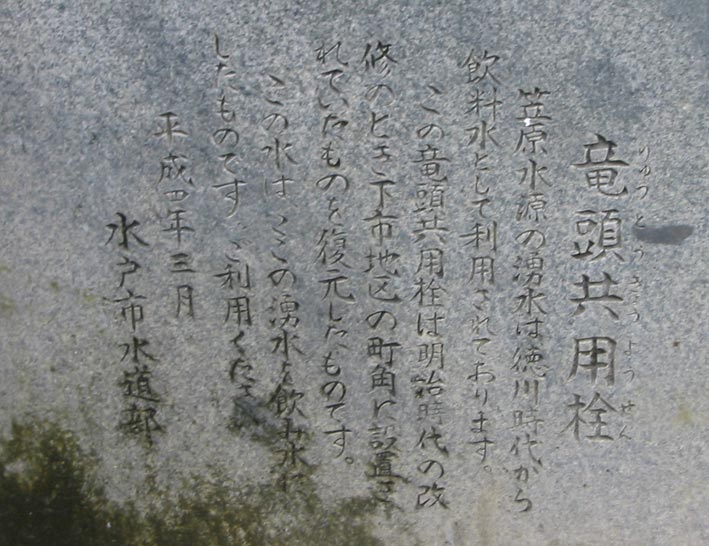 竜頭共用栓
りゅうとうきょうようせん
笠原水源の湧水は徳川時代から
飲料水として利用されております。
この竜頭共用栓は明治時代の改
修のとき下市地区の町角に設置さ
れていたものを復元したものです。
この水は、ここの湧水を飲料水に
したものです。ご利用ください
平成四年三月
水戸市水道部